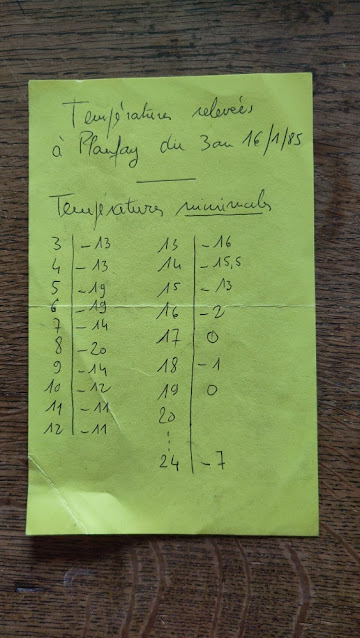 Températures relevées
à Planfay du 3 au 16/1/85
Températures minimales
3 -13
4 -13
5 -19
6 -19
7 -14
8 -20
9 -14
10 -12
11 -11
12 -11
13 -16
14 -15,5
15 -13
16 -2
17 0
18 -1
19 0
20
24 -7